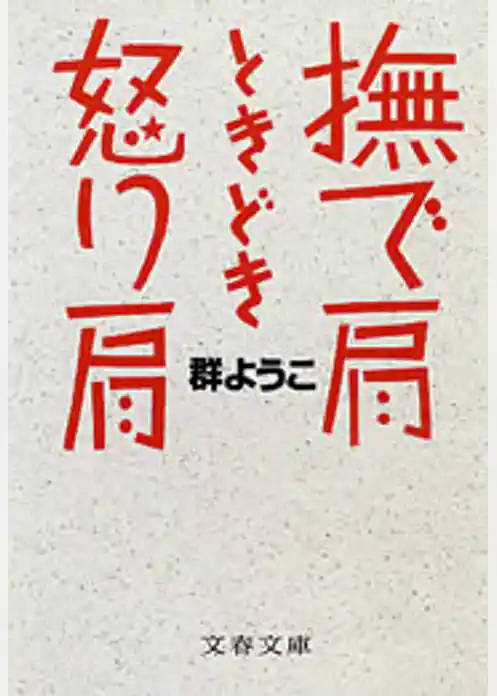 撫で肩
ときどき
怒り肩
群ようこ
文春文庫